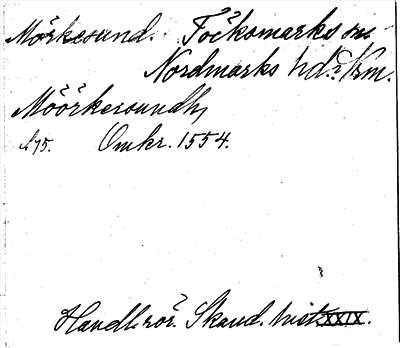 Mörkesund. Töcksmarks sn
Nordmarks hd. Vrm.
Möörkesundh,
s. 75. Omkr. 1554.
Handl. rör. Skand. hist. XXIX.